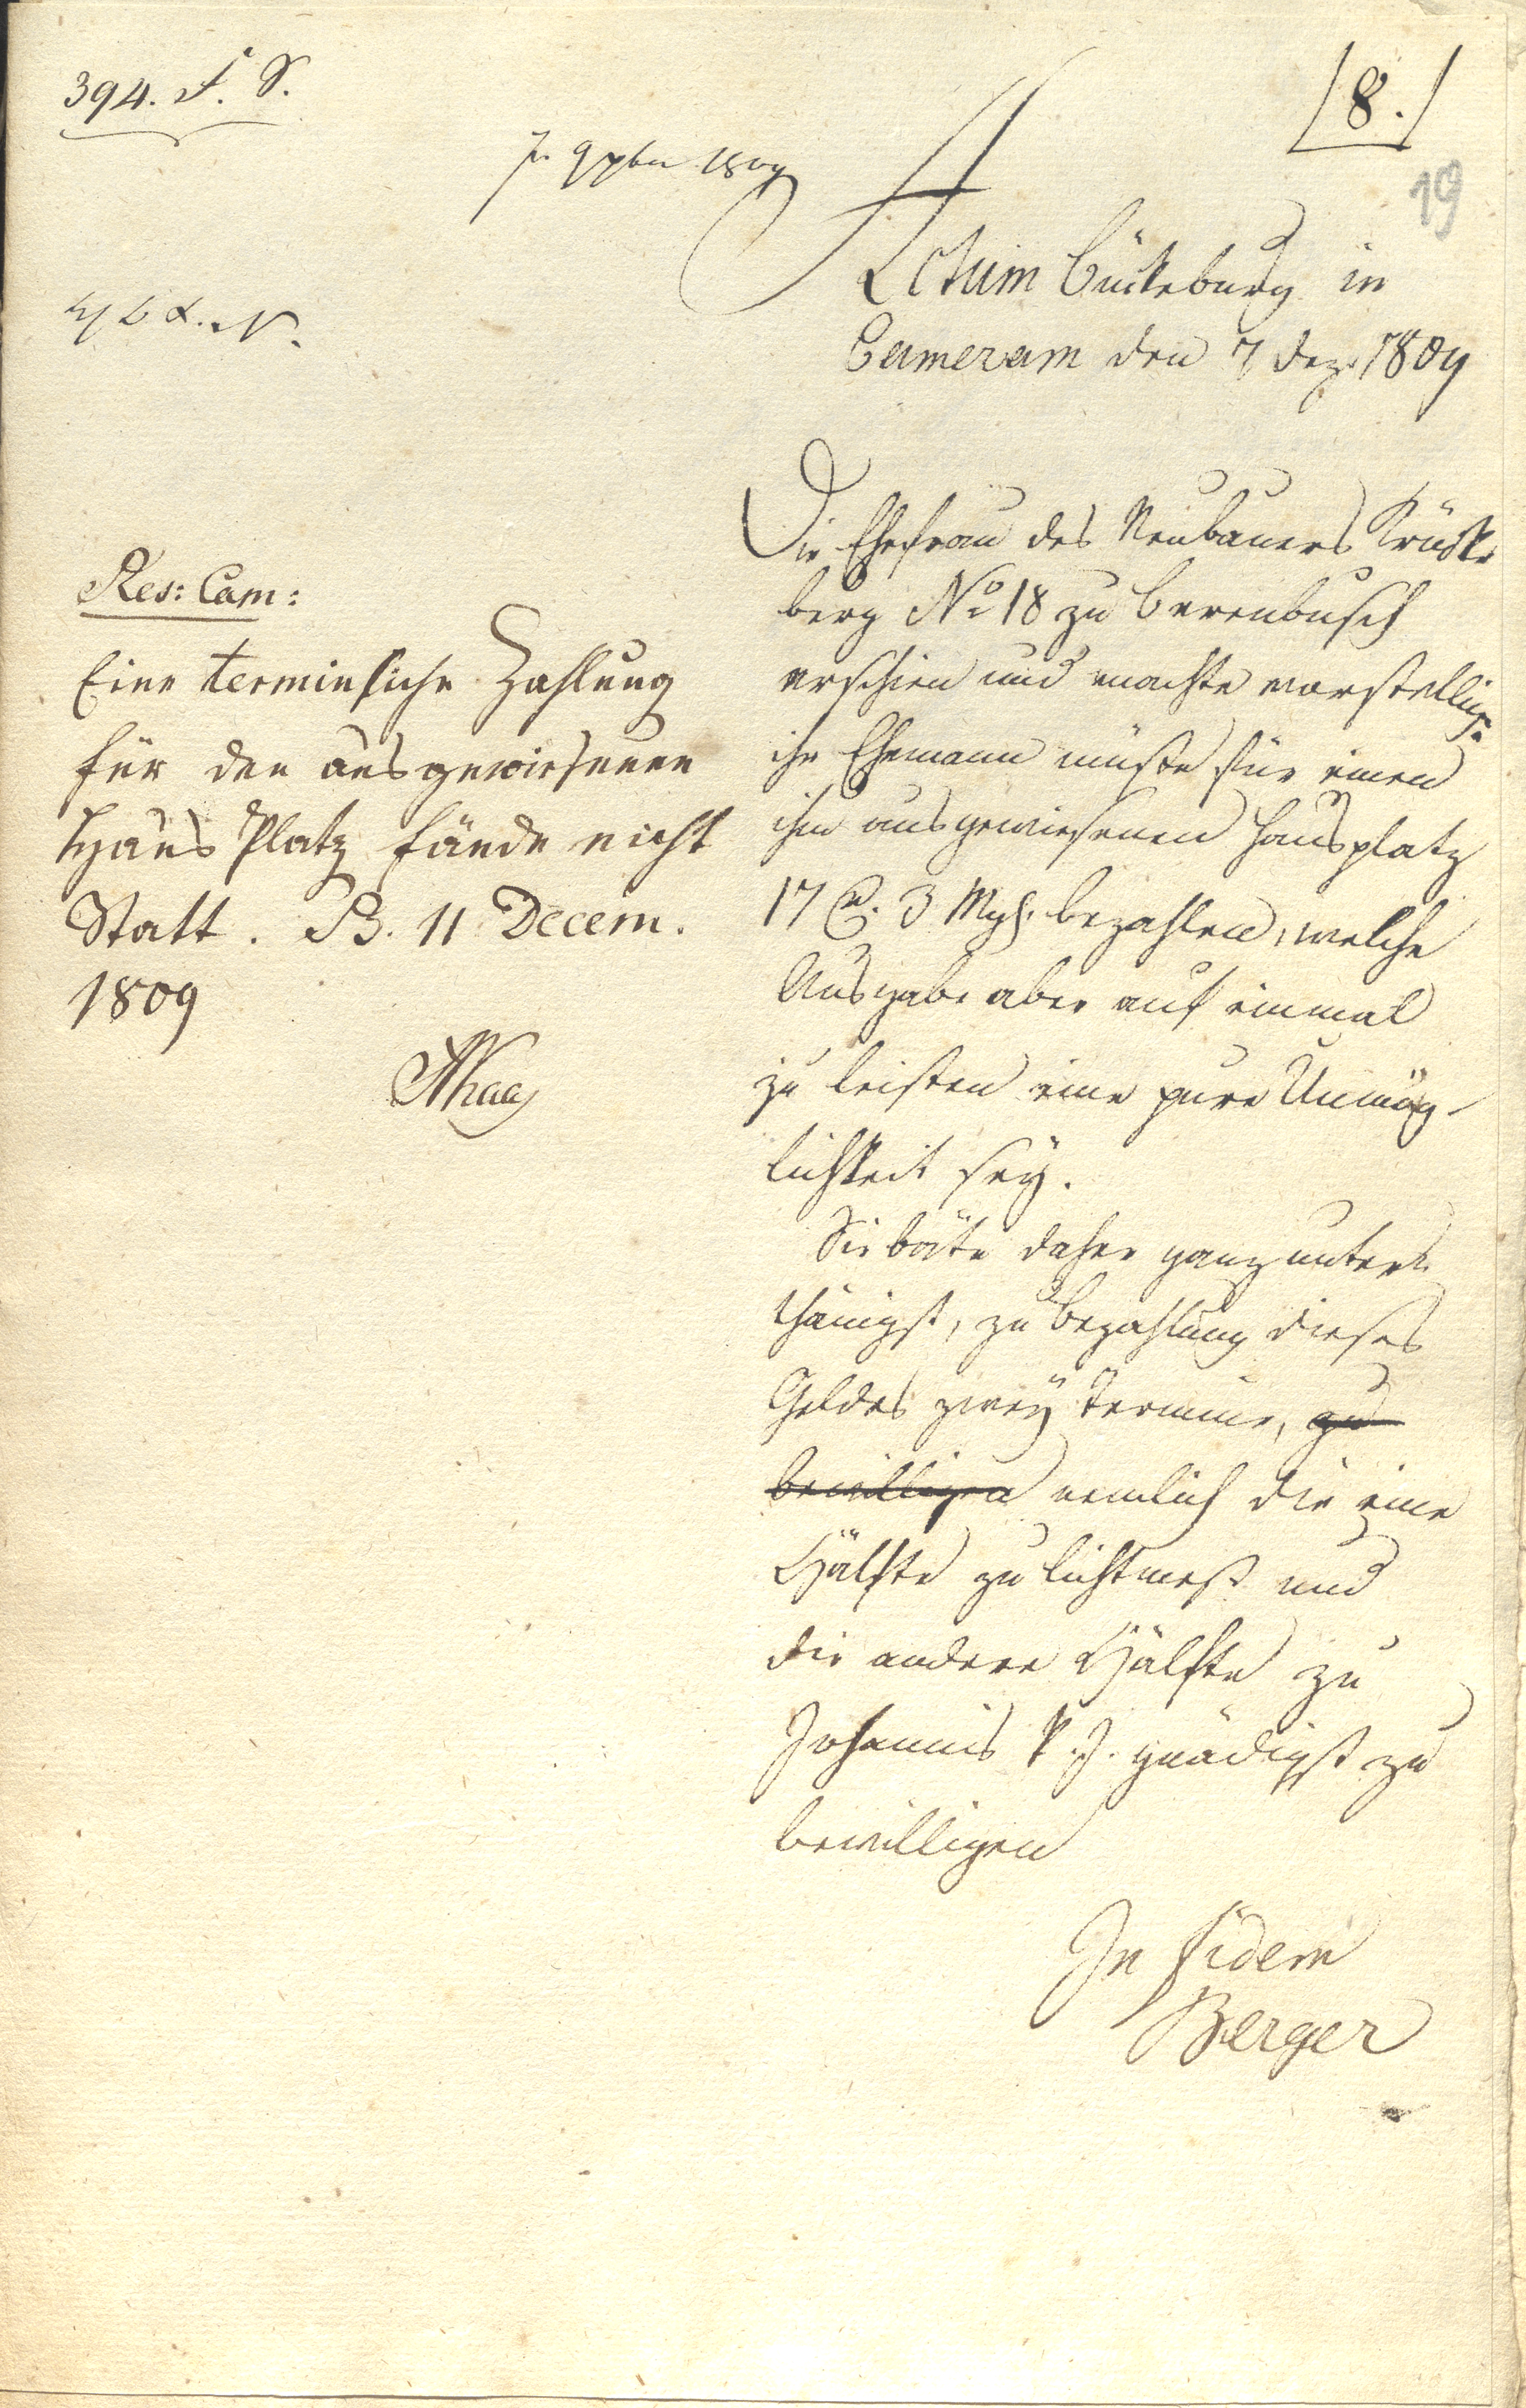 394. S. S.
[8.]
19
Actum Bückeburg in
Cameram den 7 Dez. 1809
Die Ehefrau des Neubauers Krücke
berg No 18 zu Berenbusch
erschien und machte vorstellig:
ihr Ehemann müßte für einen
ihm ausgewiesenen Hausplatz
17 rl. 3 Mgl. bezahlen, welche
Ausgabe aber auf einmal
zu leisten eine pure Unmög-
lichkeit sey.
Sie bäte daher ganz unter-
thänigst, zu Bezahlung dieses
Geldes zwey Termine, zu
bewilligen nemlich die eine
Hälfte zu Lichtmeß und
die andere Hälfte zu
Johannis k. J. gnädigst zu
bewilligen
In fidem
Berger
Res: Cam:
Eine terminliche Zahlung
für den ausgewiesenen
Haus Platz fände nicht
Statt. B. 11 Decem.
1809